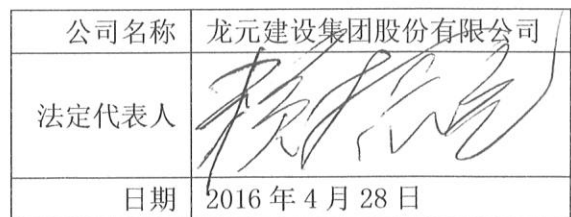 公司名称 龙元建设集团股份有限公司
法定代表人
日期 2016 年 4 月 28 日